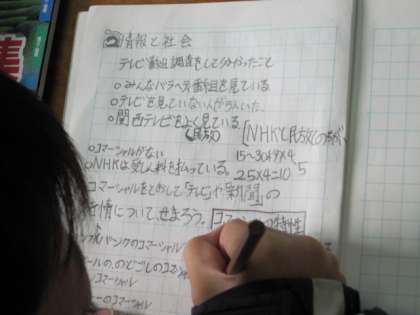 情報と社会
テレビ番組調査をして分かったこと
○みんなバラへ方番組を見ている
○テレビを見ていない人が多い
○関西テレビをよく見ている
(民放)
NHKと民放
○コマーシャルがない
15〜30
○NHKは受しん料を払っている。
25×4=10
コマーシャルをとおして「テレビ」や「新聞」の
情について、せまろう。
コマーシャルの特性
バンクのコマーシャル
ールの、のどごしのコマ
コマーシャル
ーのコマーシャル